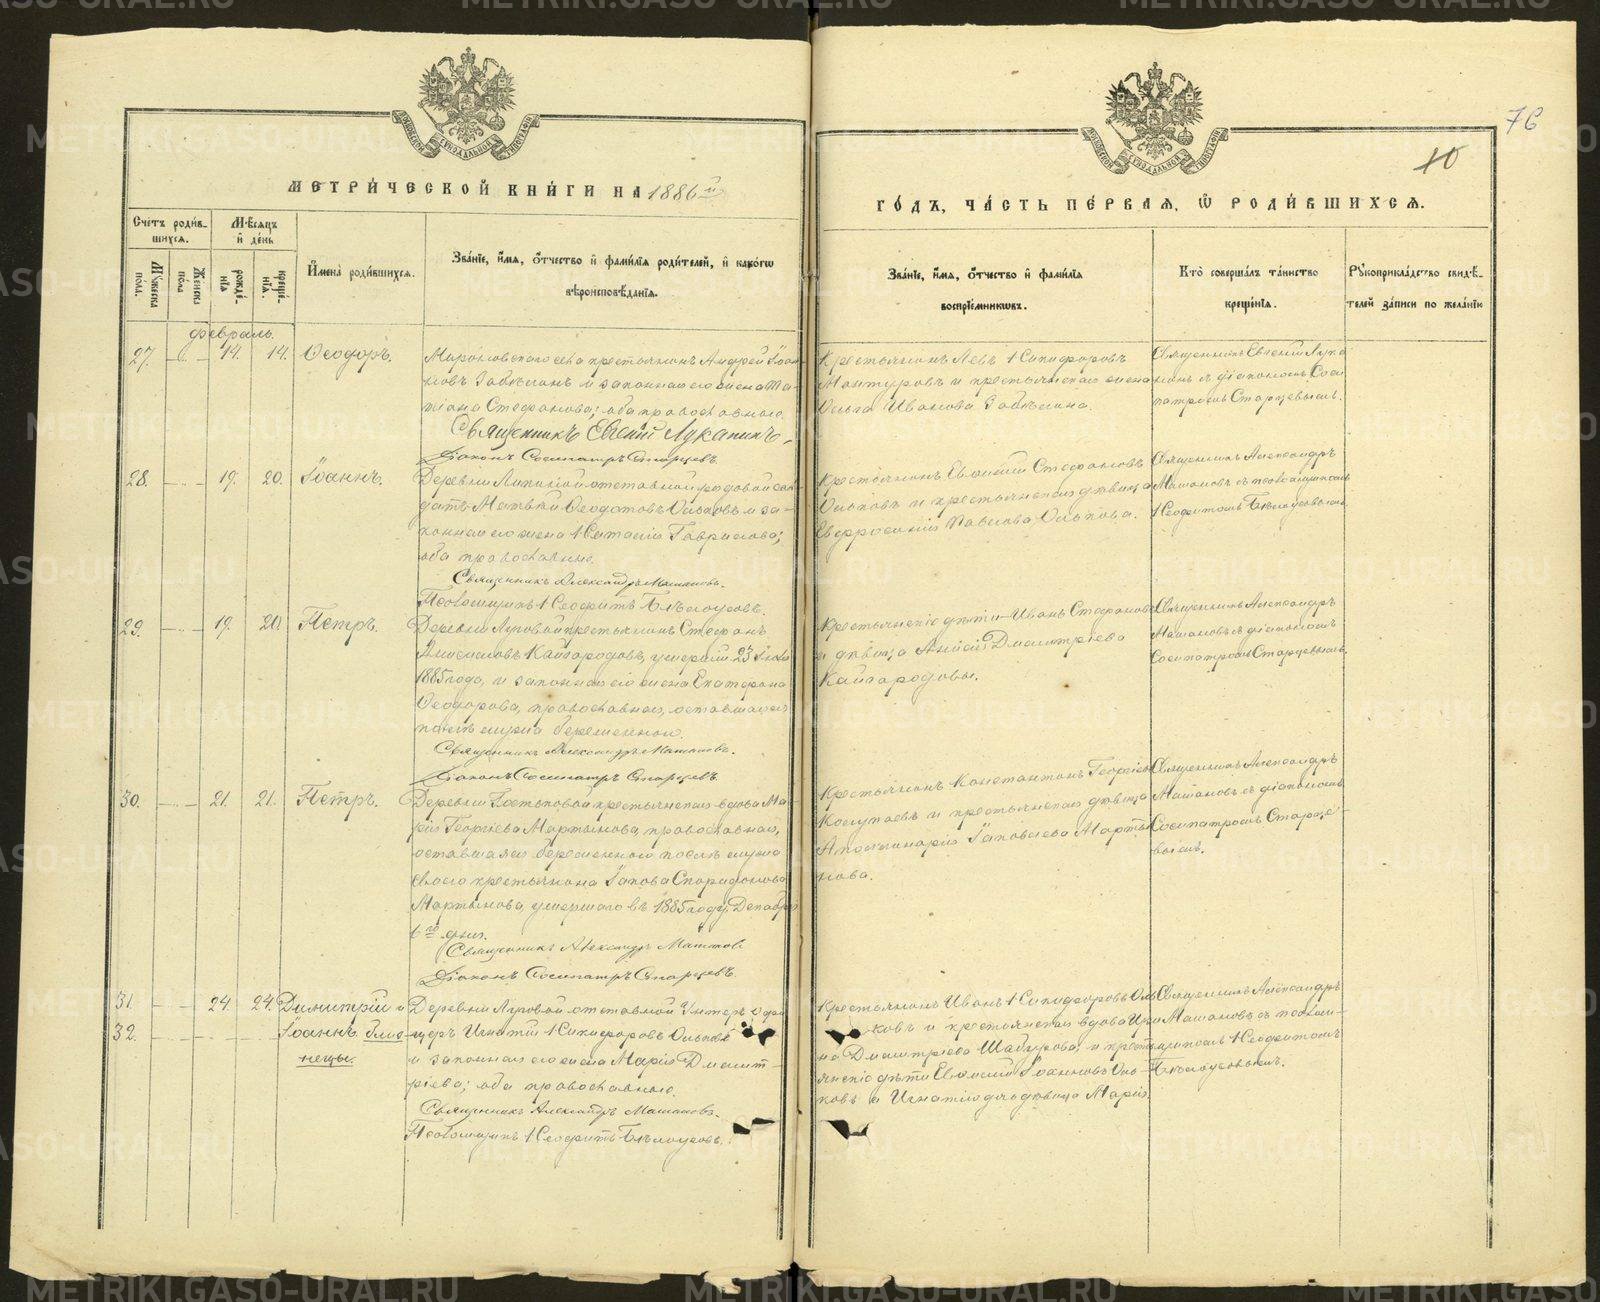 МЕТРИ́ЧЕСКОЙ КНИ́ГИ НА 1886 й
ГО́ДЪ, ЧА́СТЬ ПЕ́РВАЯ, Ѽ РОДИ́ВШИХСЯ.
76
10
Счетъ роди́в-
шихся.
Мѣсяцъ
и де́нь
Имена̀ роди́вшихся.
Зва́нїе, и́мя, ѻ́тчество и фами́лїя роди́телей, и како́гѡ
вѣроисповѣ́данїя.
Му́жеска
по́ла.
Же́нска
по́ла
рожде́-
нїя
креще́-
нїя.
Зва́нїе, и́мя, ѻ́тчество и фами́лїя
воспрїе́мникѡвъ.
Кто̀ соверша́лъ та́инство
креще́нїя.
Рꙋкоприкла́дство свидѣ́-
телей за́писи по жела́нїю
Февраль.
27. 14. 14. Ѳеодоръ.
Мироновскаго села крестьянинъ Андрей Іоан-
новъ Забѣлинъ и законная его жена Та-
тіана Стефанова; оба православные.
Священникъ Евгеній Луканинъ.
Діаконъ Сосипатръ Старцевъ.
Крестьянинъ Левъ Никифоровъ
Мантуровъ и крестьянская жена
Ольга Иванова Забѣлина.
Священникъ Евгеній Лука
нинъ съ діакономъ Соси
патромъ Старцевымъ.
28. 19. 20. Іоаннъ.
Деревни Липиной отставной рядовой сол
датъ Матвѣй Ѳеодотовъ Ольковъ и за-
конная его жена Гаврилова;
оба православные.
Священникъ Александръ Машановъ.
Псаломщикъ Неофитъ Бѣлоусовъ.
Крестьянинъ Евѳимій Стефановъ
Ольковъ и крестьянская дѣвица
Евфросинія Павлова Олькова.
Священникъ Александръ
Машановъ съ псаломщикомъ
Неофитомъ Бѣлоусовымъ
29. 19. 20. Петръ.
Деревни Луговой крестьянинъ Стефанъ
Кайгородовъ, умершій 23
1885 года, и законная его жена Екатерина
Ѳеодорова, православная, оставшаяся
послѣ мужа беременной.
Священникъ Александръ Машановъ.
Діаконъ Сосипатръ Старцевъ.
Крестьянскіе дѣти Иванъ Стефановъ
и дѣвица Дмитріева
Кайгородовы.
Священникъ Александръ
Машановъ съ діакономъ
Сосипатромъ Старцевымъ.
30. 21. 21. Петръ.
Деревни крестьянская вдова Ма-
рія Георгіева Мартынова, православная,
оставшаяся беременною послѣ мужа
своего крестьянина Іакова Спиридонова
Мартынова, умершаго въ 1885 году, Декабря
6 го дня.
Священникъ Александръ Машановъ
Діаконъ Сосипатръ Старцевъ.
Крестьянинъ Константинъ Георгіевъ
и крестьянская дѣвица
Апполинарія Іаковлева Марты
нова.
Священникъ Александръ
Машановъ съ діакономъ
Сосипатромъ Старце-
вымъ.
31. 24. 24. Димитрій и
32. Іоаннъ близ-
нецы.
Деревни Луговой отставной Унтеръ Офи
церъ Игнатій Никифоровъ Ольковъ
и законная его жена Марія Дмит-
ріева; оба православные.
Священникъ Александръ Машановъ.
Псаломщикъ Неофитъ Бѣлоусовъ.
Крестьянинъ Иванъ Никифоровъ Оль
ковъ и крестьянская вдова Ири
на Дмитріева и кресть
янскіе дѣти Евѳимій Іоанновъ Оль-
ковъ и дѣвица Марія.
Священникъ Александръ
Машановъ съ псалом-
щикомъ Неофитомъ
Бѣлоусовымъ.
METRIKI.GASO-URAL.RU